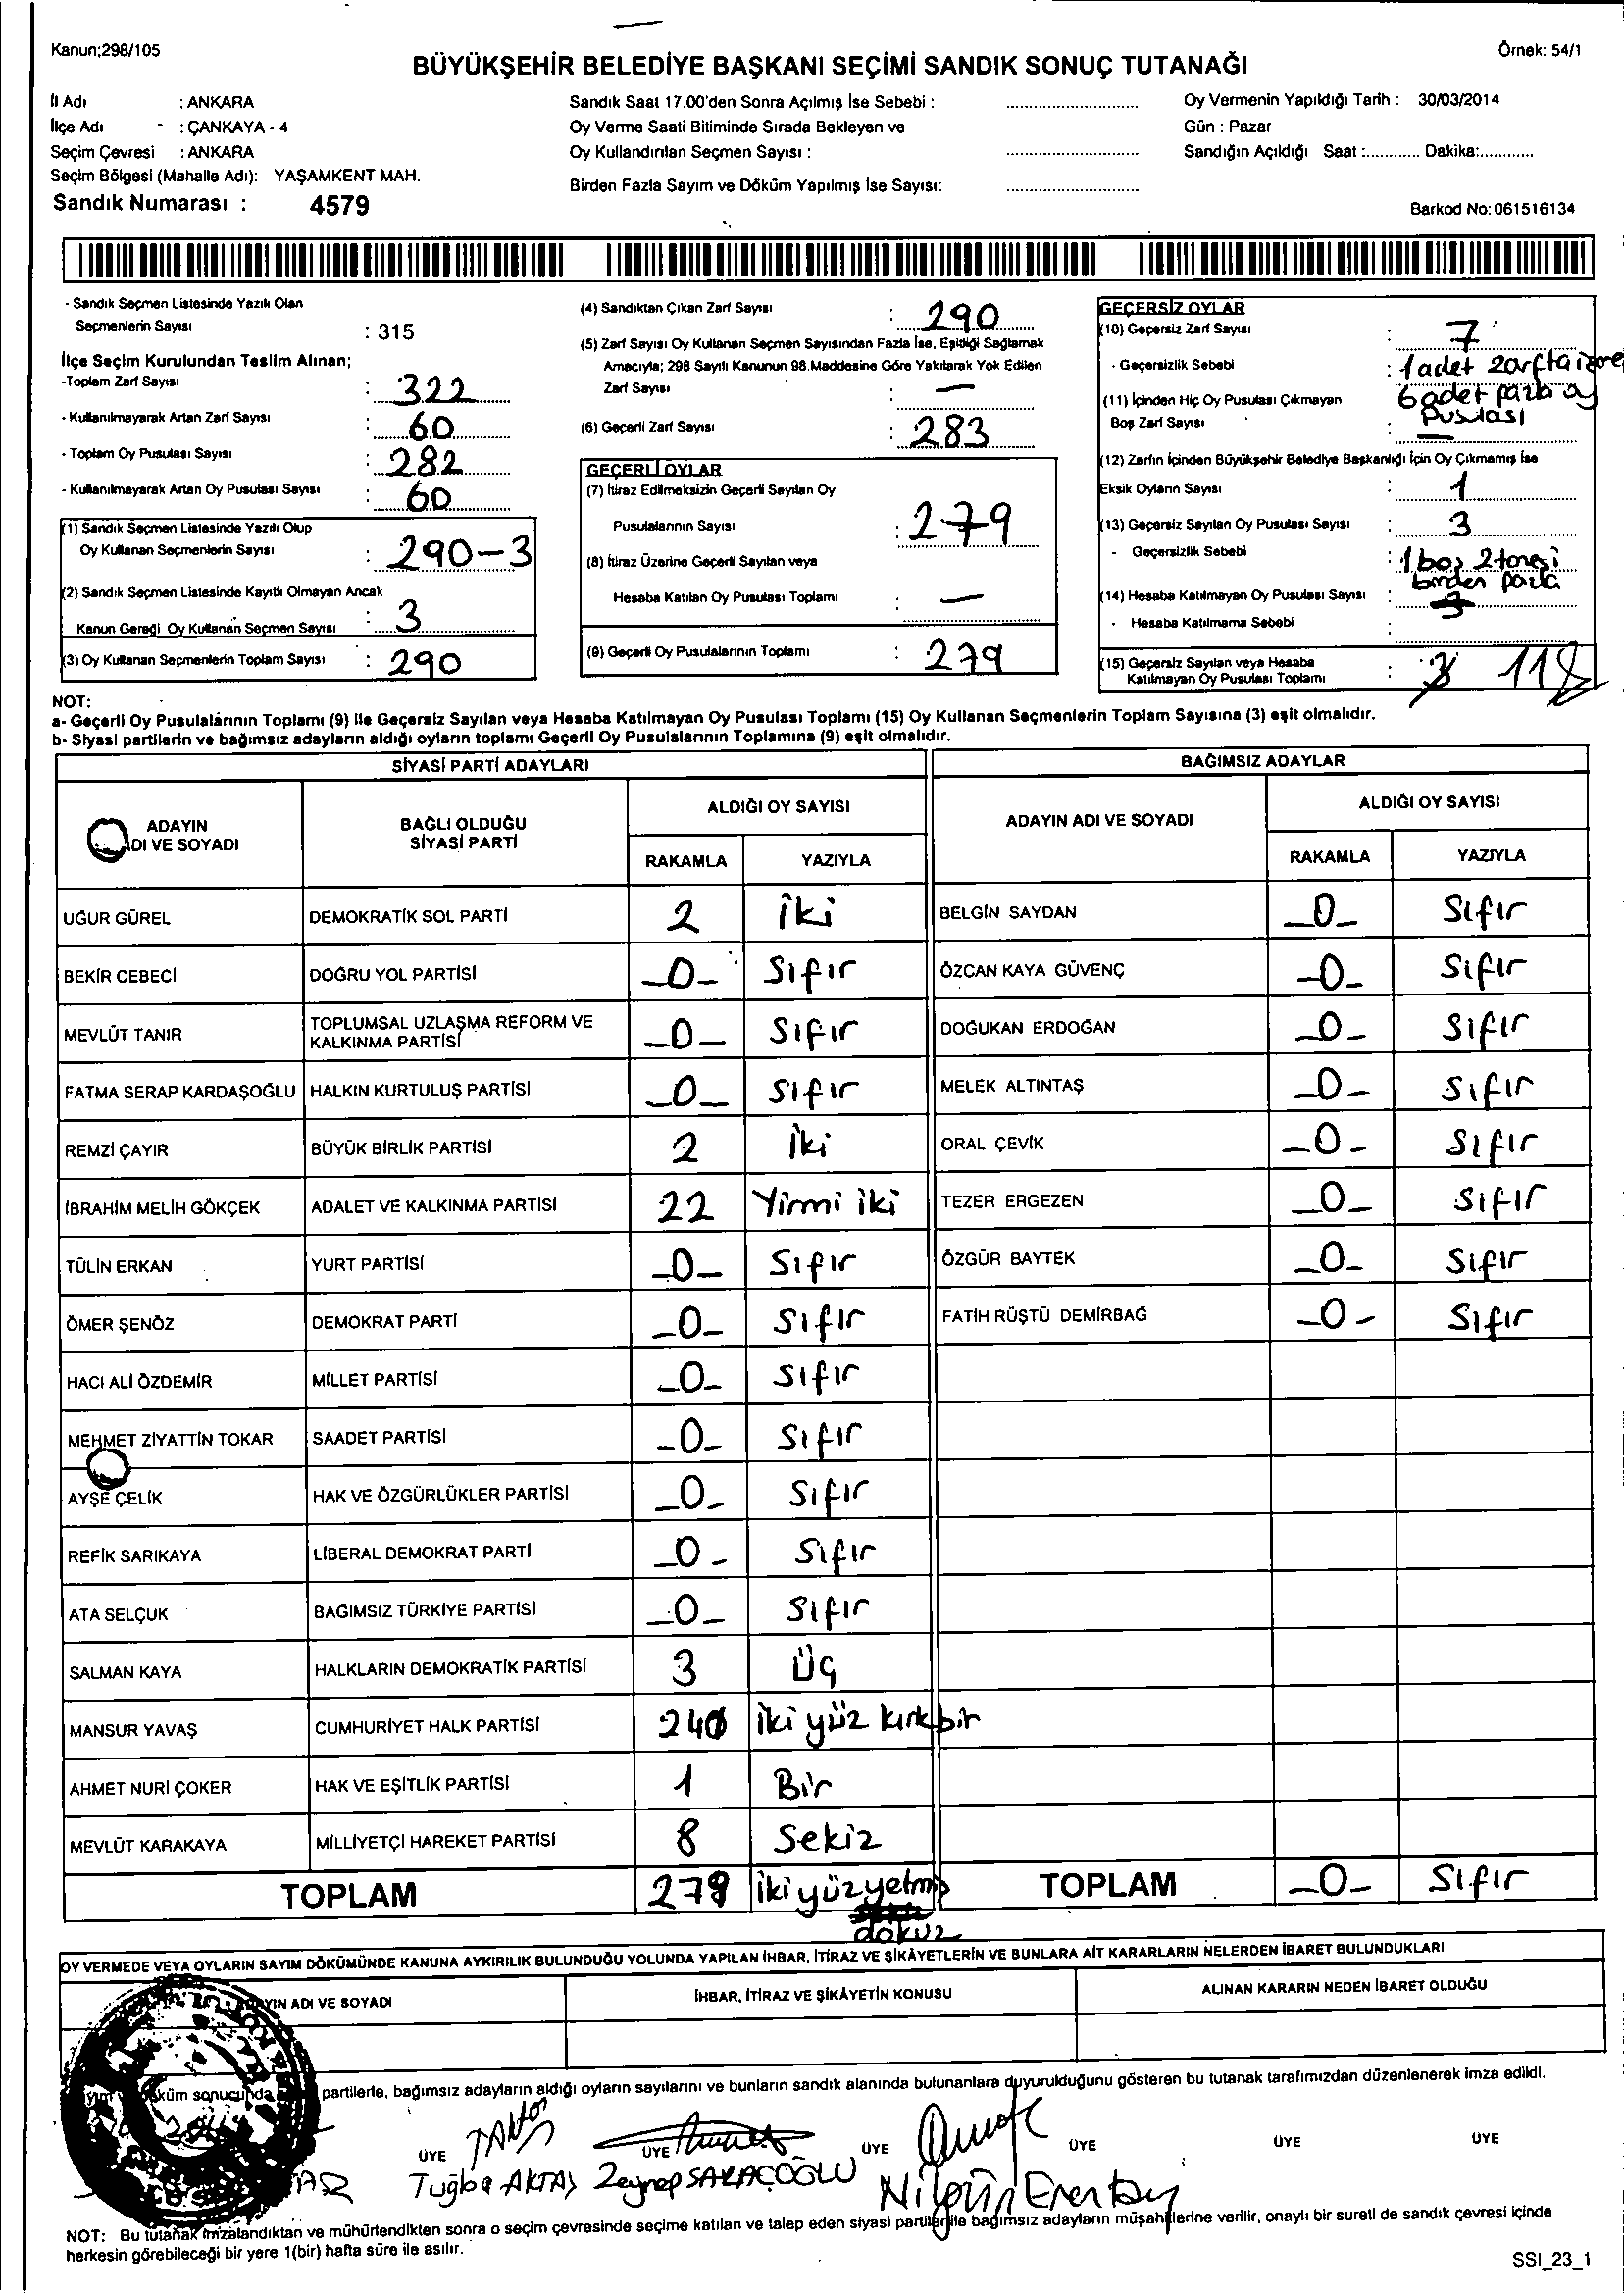 Kanun;298/105
Örnek: 54/1
BÜYÜKŞEHİR BELEDİYE BAŞKANI SEÇİMİ SANDIK SONUÇ TUTANAĞI
İl Adı : ANKARA
İlçe Adı - : ÇANKAYA - 4
Seçim Çevresi : ANKARA
Seçim Bölgesi (Mahalle Adı): YAŞAMKENT MAH.
Sandık Numarası : 4579
Sandık Saat 17.00'den Sonra Açılmış İse Sebebi :
Oy Verme Saati Bitiminde Sırada Bekleyen ve
Oy Kullandırılan Seçmen Sayısı :
Birden Fazla Sayım ve Döküm Yapılmış İse Sayısı:
Oy Vermenin Yapıldığı Tarih : 30/03/2014
Gün : Pazar
Sandığın Açıldığı Saat :............ Dakika:............
Barkod No:061516134
- Sandık Seçmen Listesinde Yazılı Olan
Seçmenlerin Sayısı : 315
İlçe Seçim Kurulundan Teslim Alınan;
-Toplam Zarf Sayısı : 322
- Kullanılmayarak Artan Zarf Sayısı : 60
- Toplam Oy Pusulası Sayısı : 282
- Kullanılmayarak Artan Oy Pusulası Sayısı : 60
(1) Sandık Seçmen Listesinde Yazılı Olup
Oy Kullanan Seçmenlerin Sayısı : 290-3
(2) Sandık Seçmen Listesinde Kayıtlı Olmayan Ancak
Kanun Gereği Oy Kullanan Seçmen Sayısı : 3
(3) Oy Kullanan Seçmenlerin Toplam Sayısı : 290
(4) Sandıktan Çıkan Zarf Sayısı : 290
(5) Zarf Sayısı Oy Kullanan Seçmen Sayısından Fazla İse, Eşitliği Sağlamak
Amacıyla; 298 Sayılı Kanunun 98.Maddesine Göre Yakılarak Yok Edilen
Zarf Sayısı : —
(6) Geçerli Zarf Sayısı : 283
GEÇERLİ OYLAR
(7) İtiraz Edilmeksizin Geçerli Sayılan Oy
Pusulalarının Sayısı : 279
(8) İtiraz Üzerine Geçerli Sayılan veya
Hesaba Katılan Oy Pusulası Toplamı : —
(9) Geçerli Oy Pusulalarının Toplamı : 279
GEÇERSİZ OYLAR
(10) Geçersiz Zarf Sayısı : 7
- Geçersizlik Sebebi : 1 adet zarfta
6 adet fazla oy
pusulası
(11) İçinden Hiç Oy Pusulası Çıkmayan
Boş Zarf Sayısı : —
(12) Zarfın İçinden Büyükşehir Belediye Başkanlığı İçin Oy Çıkmamış İse
Eksik Oyların Sayısı : 1
(13) Geçersiz Sayılan Oy Pusulası Sayısı : 3
- Geçersizlik Sebebi : 1 boş 2 tanesi
birden fazla
(14) Hesaba Katılmayan Oy Pusulası Sayısı :
- Hesaba Katılmama Sebebi :
(15) Geçersiz Sayılan veya Hesaba
Katılmayan Oy Pusulası Toplamı : 11
NOT:
a- Geçerli Oy Pusulalarının Toplamı (9) ile Geçersiz Sayılan veya Hesaba Katılmayan Oy Pusulası Toplamı (15) Oy Kullanan Seçmenlerin Toplam Sayısına (3) eşit olmalıdır.
b- Siyasi partilerin ve bağımsız adayların aldığı oyların toplamı Geçerli Oy Pusulalarının Toplamına (9) eşit olmalıdır.
SİYASİ PARTİ ADAYLARI BAĞIMSIZ ADAYLAR
ADAYIN
ADI VE SOYADI
BAĞLI OLDUĞU
SİYASİ PARTİ
ALDIĞI OY SAYISI
RAKAMLA YAZIYLA
ADAYIN ADI VE SOYADI
ALDIĞI OY SAYISI
RAKAMLA YAZIYLA
UĞUR GÜREL DEMOKRATİK SOL PARTİ 2 iki BELGİN SAYDAN -0- Sıfır
BEKİR CEBECİ DOĞRU YOL PARTİSİ -0- Sıfır ÖZCAN KAYA GÜVENÇ -0- Sıfır
MEVLÜT TANIR TOPLUMSAL UZLAŞMA REFORM VE
KALKINMA PARTİSİ -0- Sıfır DOĞUKAN ERDOĞAN -0- Sıfır
FATMA SERAP KARDAŞOĞLU HALKIN KURTULUŞ PARTİSİ -0- Sıfır MELEK ALTINTAŞ -0- Sıfır
REMZİ ÇAYIR BÜYÜK BİRLİK PARTİSİ 2 İki ORAL ÇEVİK -0- Sıfır
İBRAHİM MELİH GÖKÇEK ADALET VE KALKINMA PARTİSİ 22 Yirmi iki TEZER ERGEZEN -0- Sıfır
TÜLİN ERKAN YURT PARTİSİ -0- Sıfır ÖZGÜR BAYTEK -0- Sıfır
ÖMER ŞENÖZ DEMOKRAT PARTİ -0- Sıfır FATİH RÜŞTÜ DEMİRBAĞ -0- Sıfır
HACI ALİ ÖZDEMİR MİLLET PARTİSİ -0- Sıfır
MEHMET ZİYATTİN TOKAR SAADET PARTİSİ -0- Sıfır
AYŞE ÇELİK HAK VE ÖZGÜRLÜKLER PARTİSİ -0- Sıfır
REFİK SARIKAYA LİBERAL DEMOKRAT PARTİ -0- Sıfır
ATA SELÇUK BAĞIMSIZ TÜRKİYE PARTİSİ -0- Sıfır
SALMAN KAYA HALKLARIN DEMOKRATİK PARTİSİ 3 Üç
MANSUR YAVAŞ CUMHURİYET HALK PARTİSİ 241 iki yüz kırk bir
AHMET NURİ ÇOKER HAK VE EŞİTLİK PARTİSİ 1 Bir
MEVLÜT KARAKAYA MİLLİYETÇİ HAREKET PARTİSİ 8 Sekiz
TOPLAM 279 iki yüz yetmiş
dokuz
TOPLAM -0- Sıfır
OY VERMEDE VEYA OYLARIN SAYIM DÖKÜMÜNDE KANUNA AYKIRILIK BULUNDUĞU YOLUNDA YAPILAN İHBAR, İTİRAZ VE ŞİKÂYETLERİN VE BUNLARA AİT KARARLARIN NELERDEN İBARET BULUNDUKLARI
ADI VE SOYADI İHBAR, İTİRAZ VE ŞİKÂYETİN KONUSU ALINAN KARARIN NEDEN İBARET OLDUĞU
sonucunda partilerle, bağımsız adayların aldığı oyların sayılarını ve bunların sandık alanında bulunanlara duyurulduğunu gösteren bu tutanak tarafımızdan düzenlenerek imza edildi.
ÜYE ÜYE ÜYE ÜYE ÜYE ÜYE
Tuğba AKTAŞ Zeynep SARAÇOĞLU Nilgün
NOT: Bu tutanak imzalandıktan ve mühürlendikten sonra o seçim çevresinde seçime katılan ve talep eden siyasi partiler ile bağımsız adayların müşahitlerine verilir, onaylı bir sureti de sandık çevresi içinde
herkesin görebileceği bir yere 1(bir) hafta süre ile asılır.
SSI_23_1